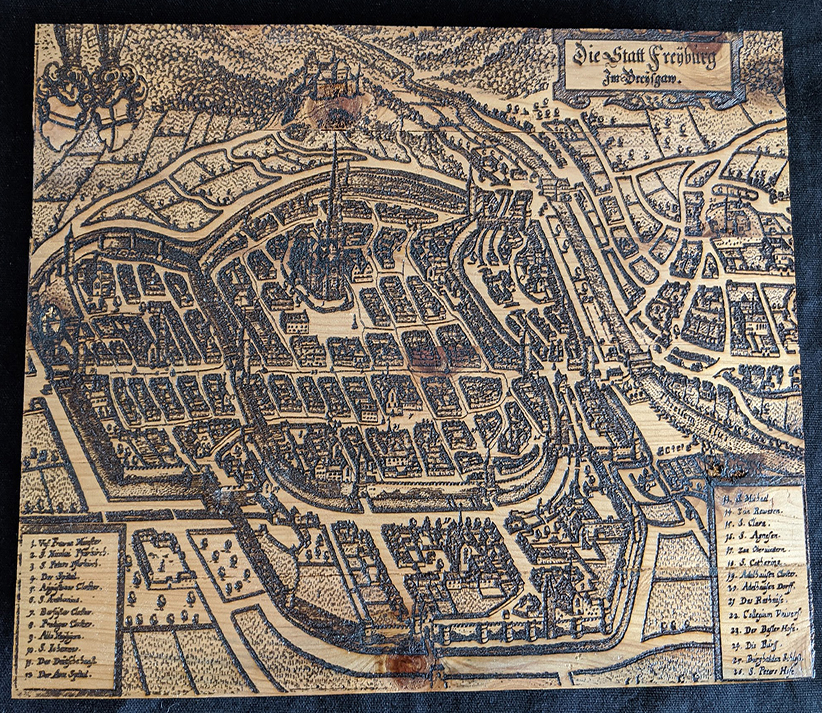 Die Statt Freyburg
Im Breysgaw.
1. Vs. Frawen Münster
2. S. Nicolai Pfarkirch.
3. S. Peters Pfarkirch.
4. Der Spital.
5. Closter.
6. S. Anthonius.
7. Barfusser Closter.
8. Prediger Closter.
9. Alle
10. S. Iohannes.
11. Das
12. Der Arm Spital.
13. S. Michael
14. Zun Rewerin.
15. S. Clara.
16. S. Agnesen.
17. Zun
18. S. Catherina.
19. Adelhausen Closter.
20. Adelhausen Dorff.
21. Das Rathaus.
22. Collegium Univers
23. Der Basler Hofe.
24. Die Burg
25. Burghalden Schlos
26. S. Peters Hofe